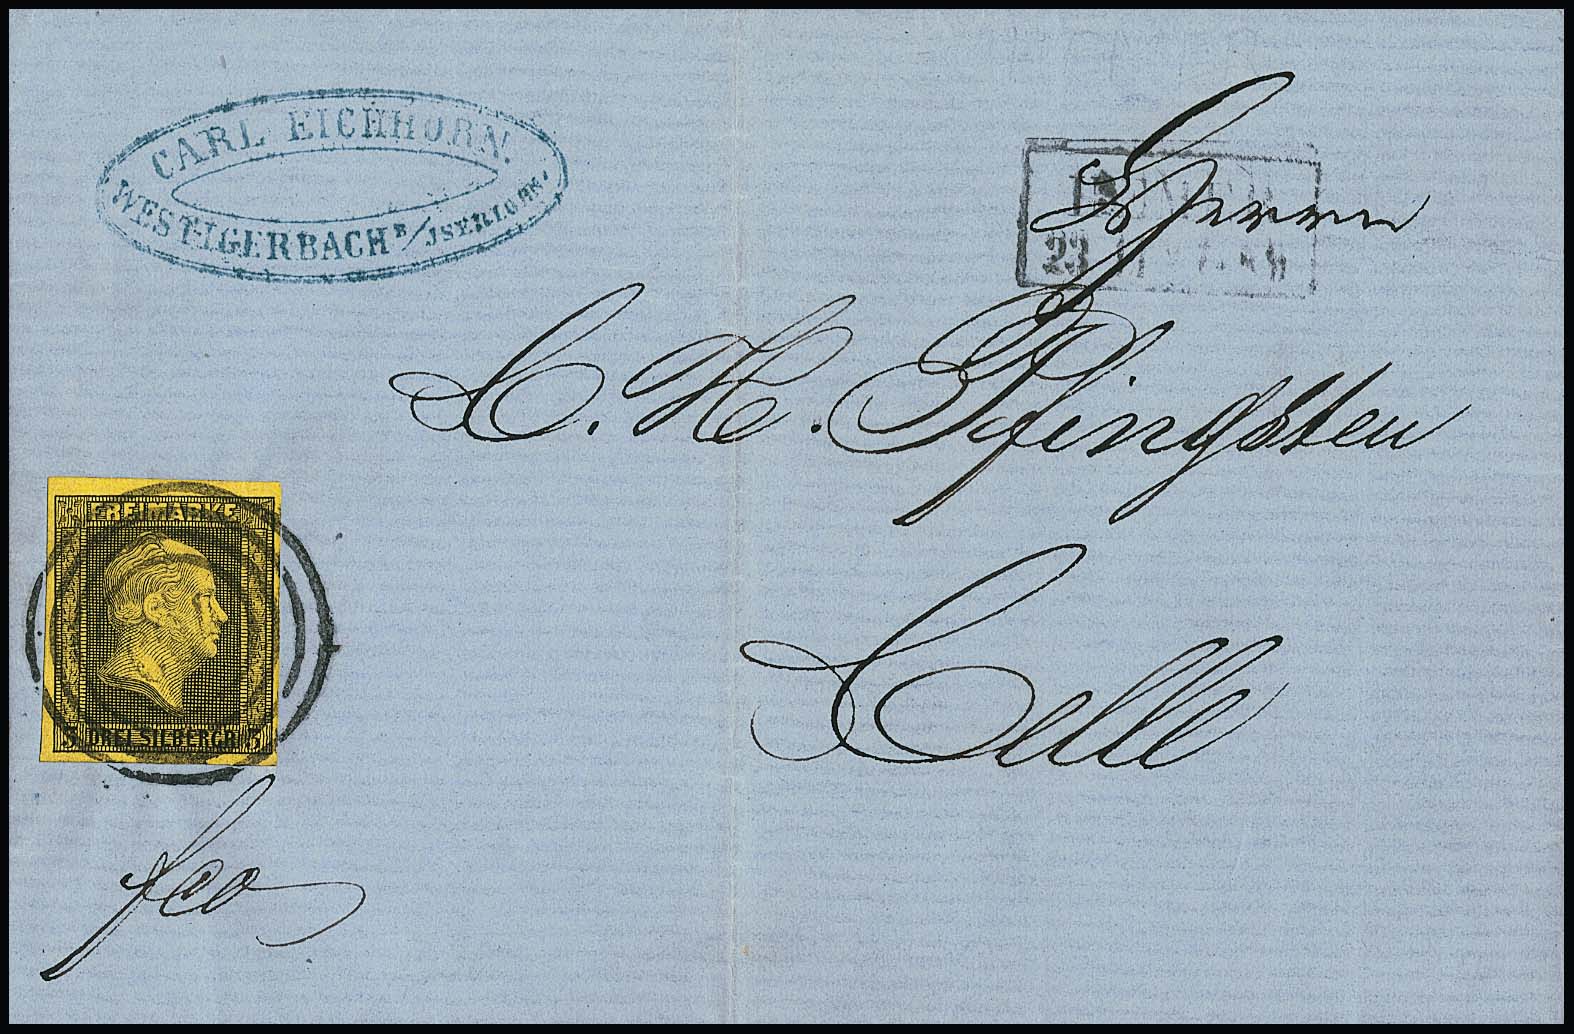 CARL EICHHORN.
WESTIGERBACH B/ JSERLOHN.
Herrn
23
C. H. Pfingsten
Celle
FREIMARKE
3 DREI SILBERGR 3
fco